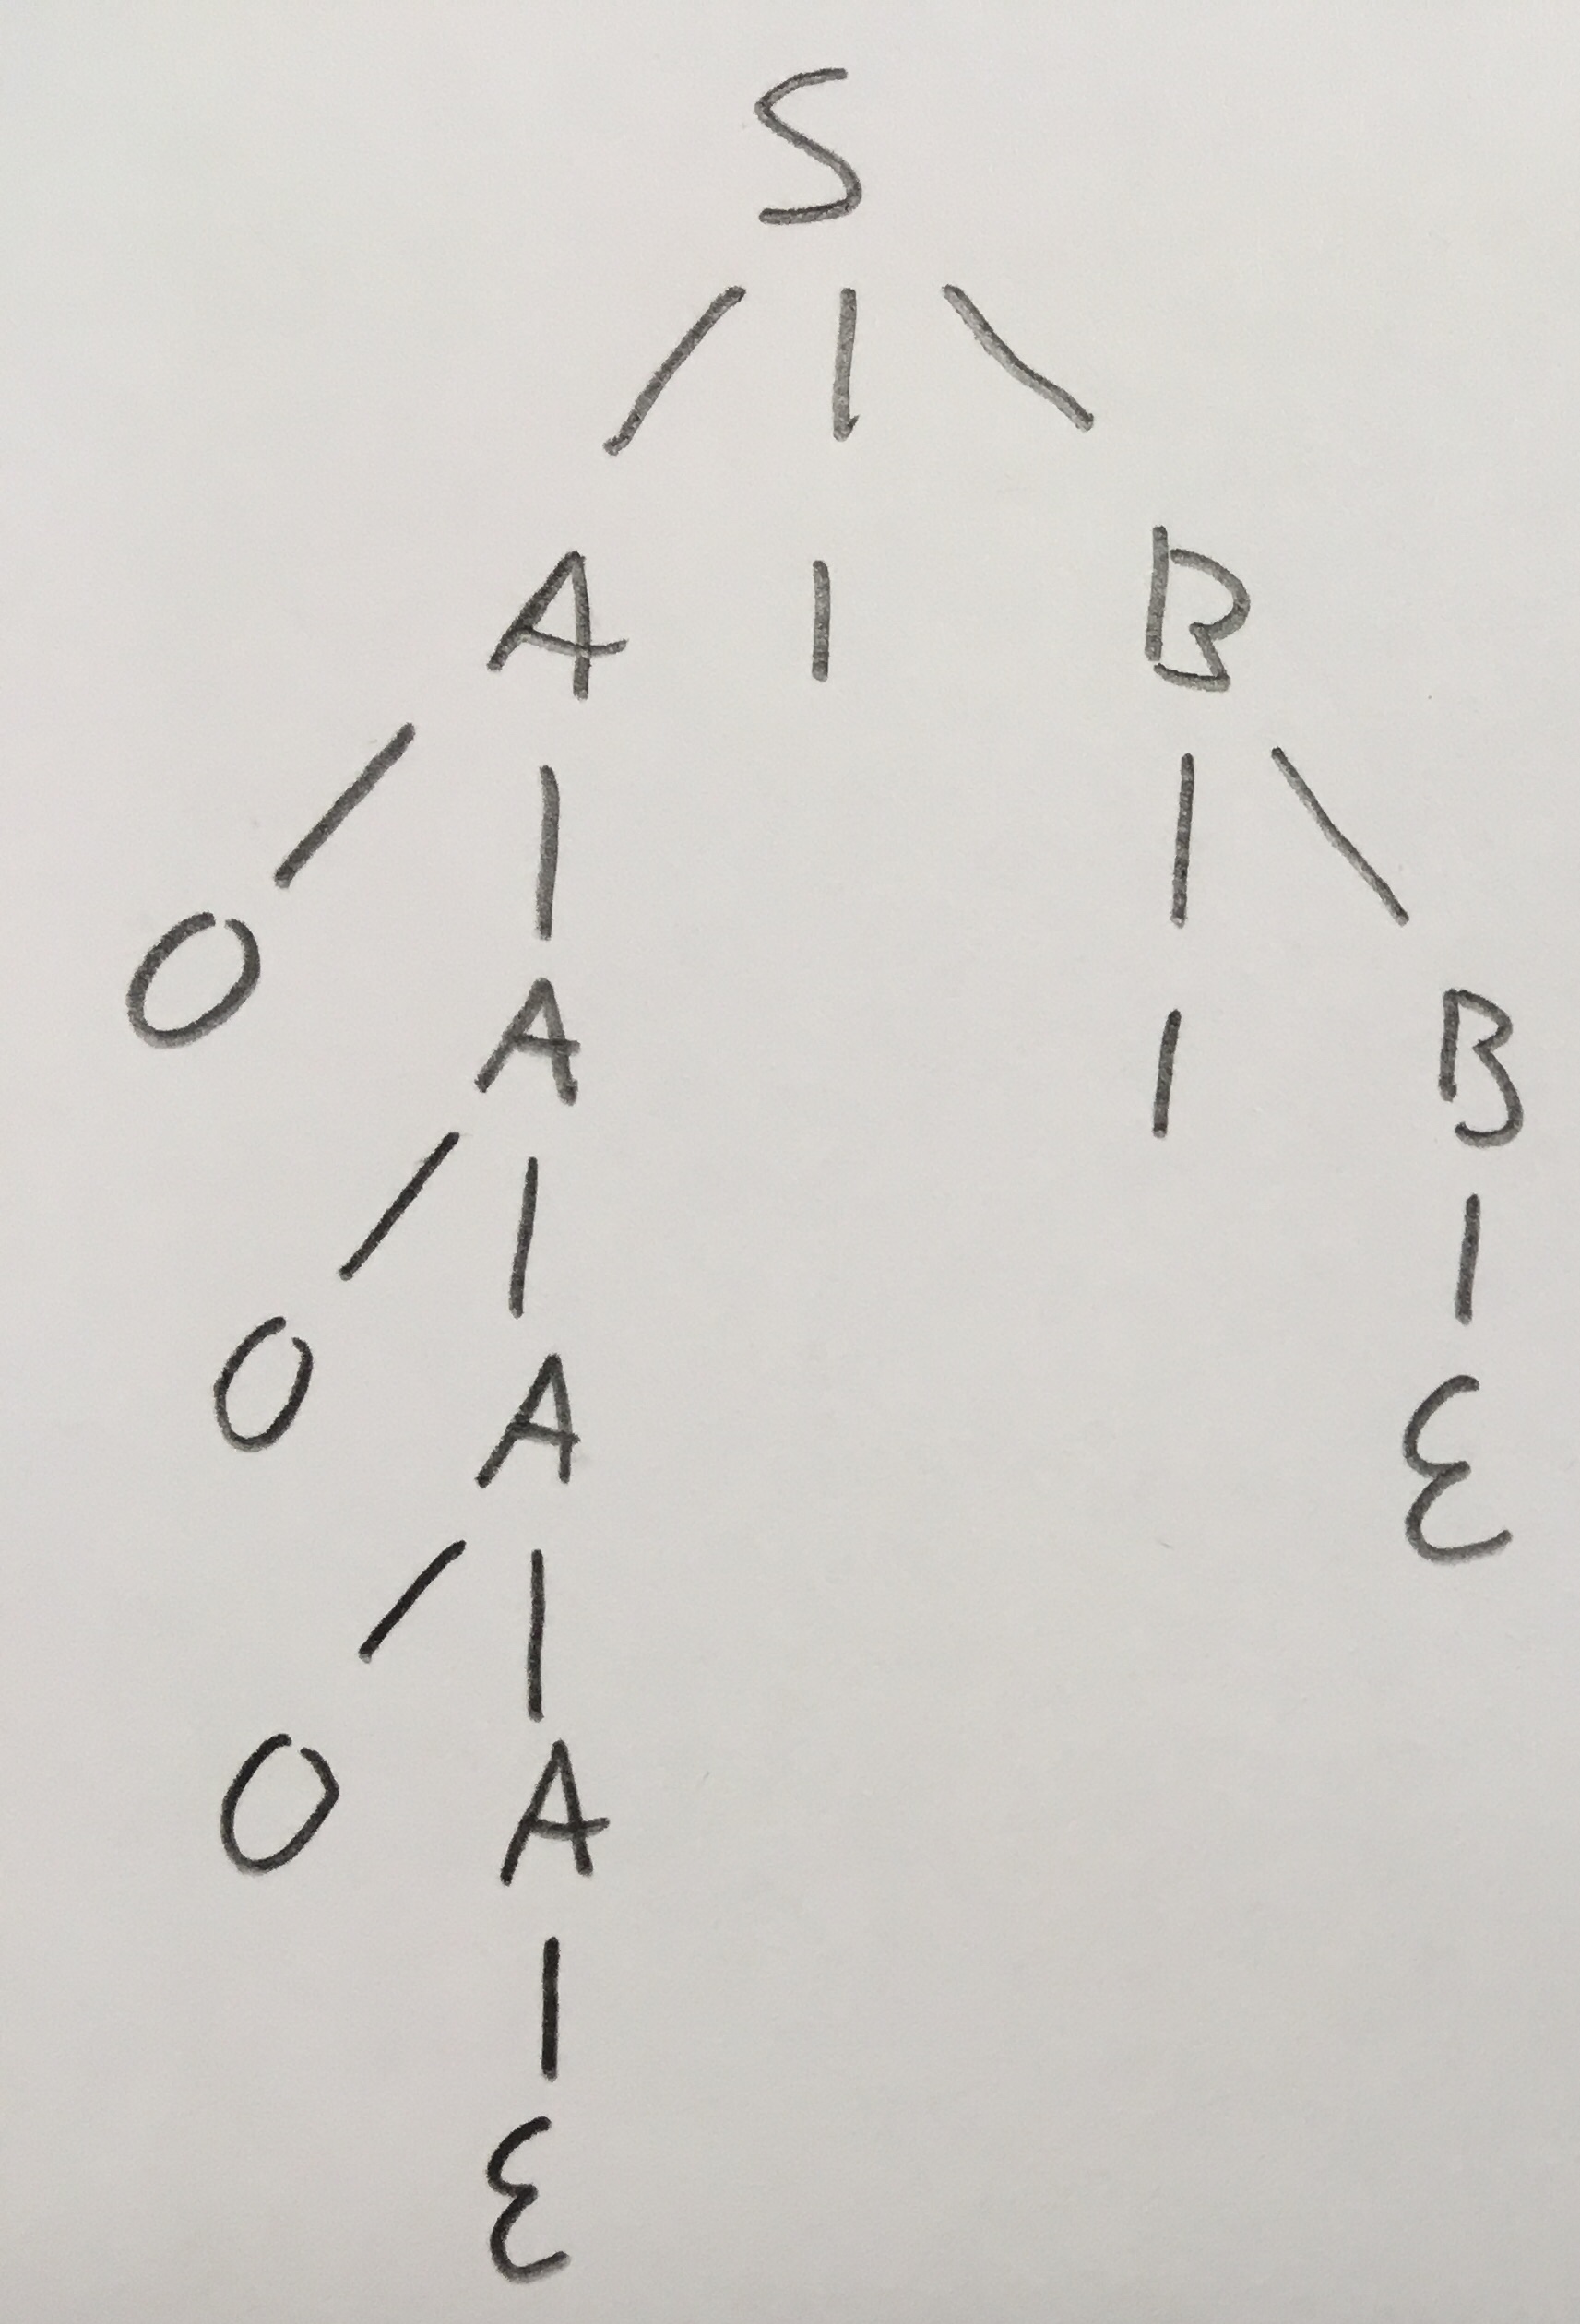 S
A 1 B
0 A 1 B
0 A ε
0 A
ε